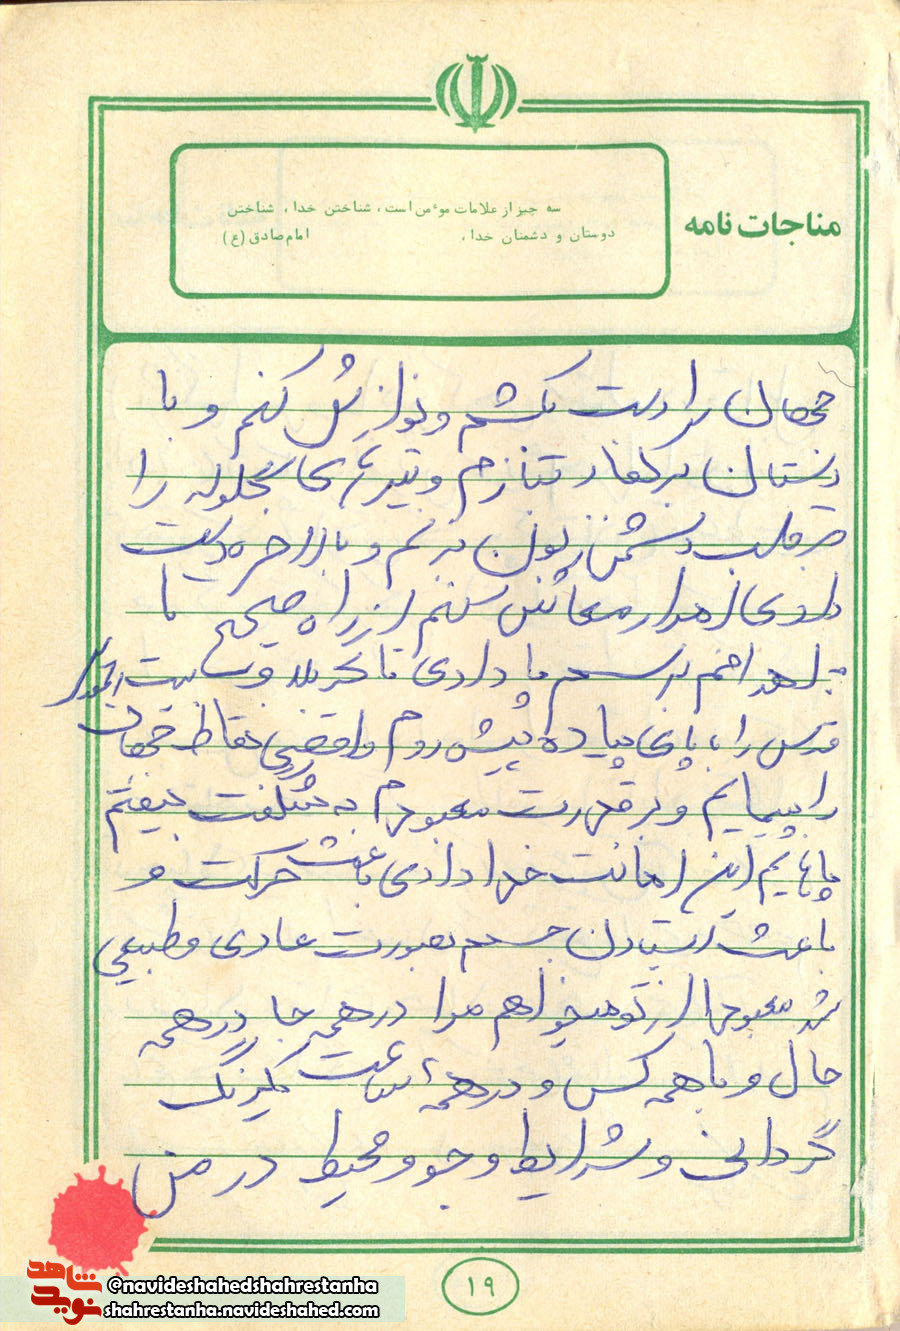 مناجات نامه
سه چیز از علامات موءمن است، شناختن خدا، شناختن
دوستان و دشمنان خدا، امام صادق (ع)
جهان را دست بکشم و نوازش کنم و با
دستان بر کفار بتازم و تیرهای گلوله را
بر قلب دشمن زبون بزنم و با
از راه صحیح با
دادی تا کربلا و
قدس را با پای پیاده پیش روم و اقصی نقاط جهان
را بپیمایم و در قدرت معبودم به شگفت بیفتم
پاهایم این امانت خدا دادی باعث حرکت و
باعث ایستادن جسم بصورت عادی و طبیعی
شد معبودا از تو میخواهم مرا در همه جا در همه
حال و با همه کس و در همهٔ ساعت یکرنگ
گردانی و شرایط و جو و محیط در من
۱۹
نوید شاهد
@navideshahedshahrestanha
shahrestanha.navideshahed.com